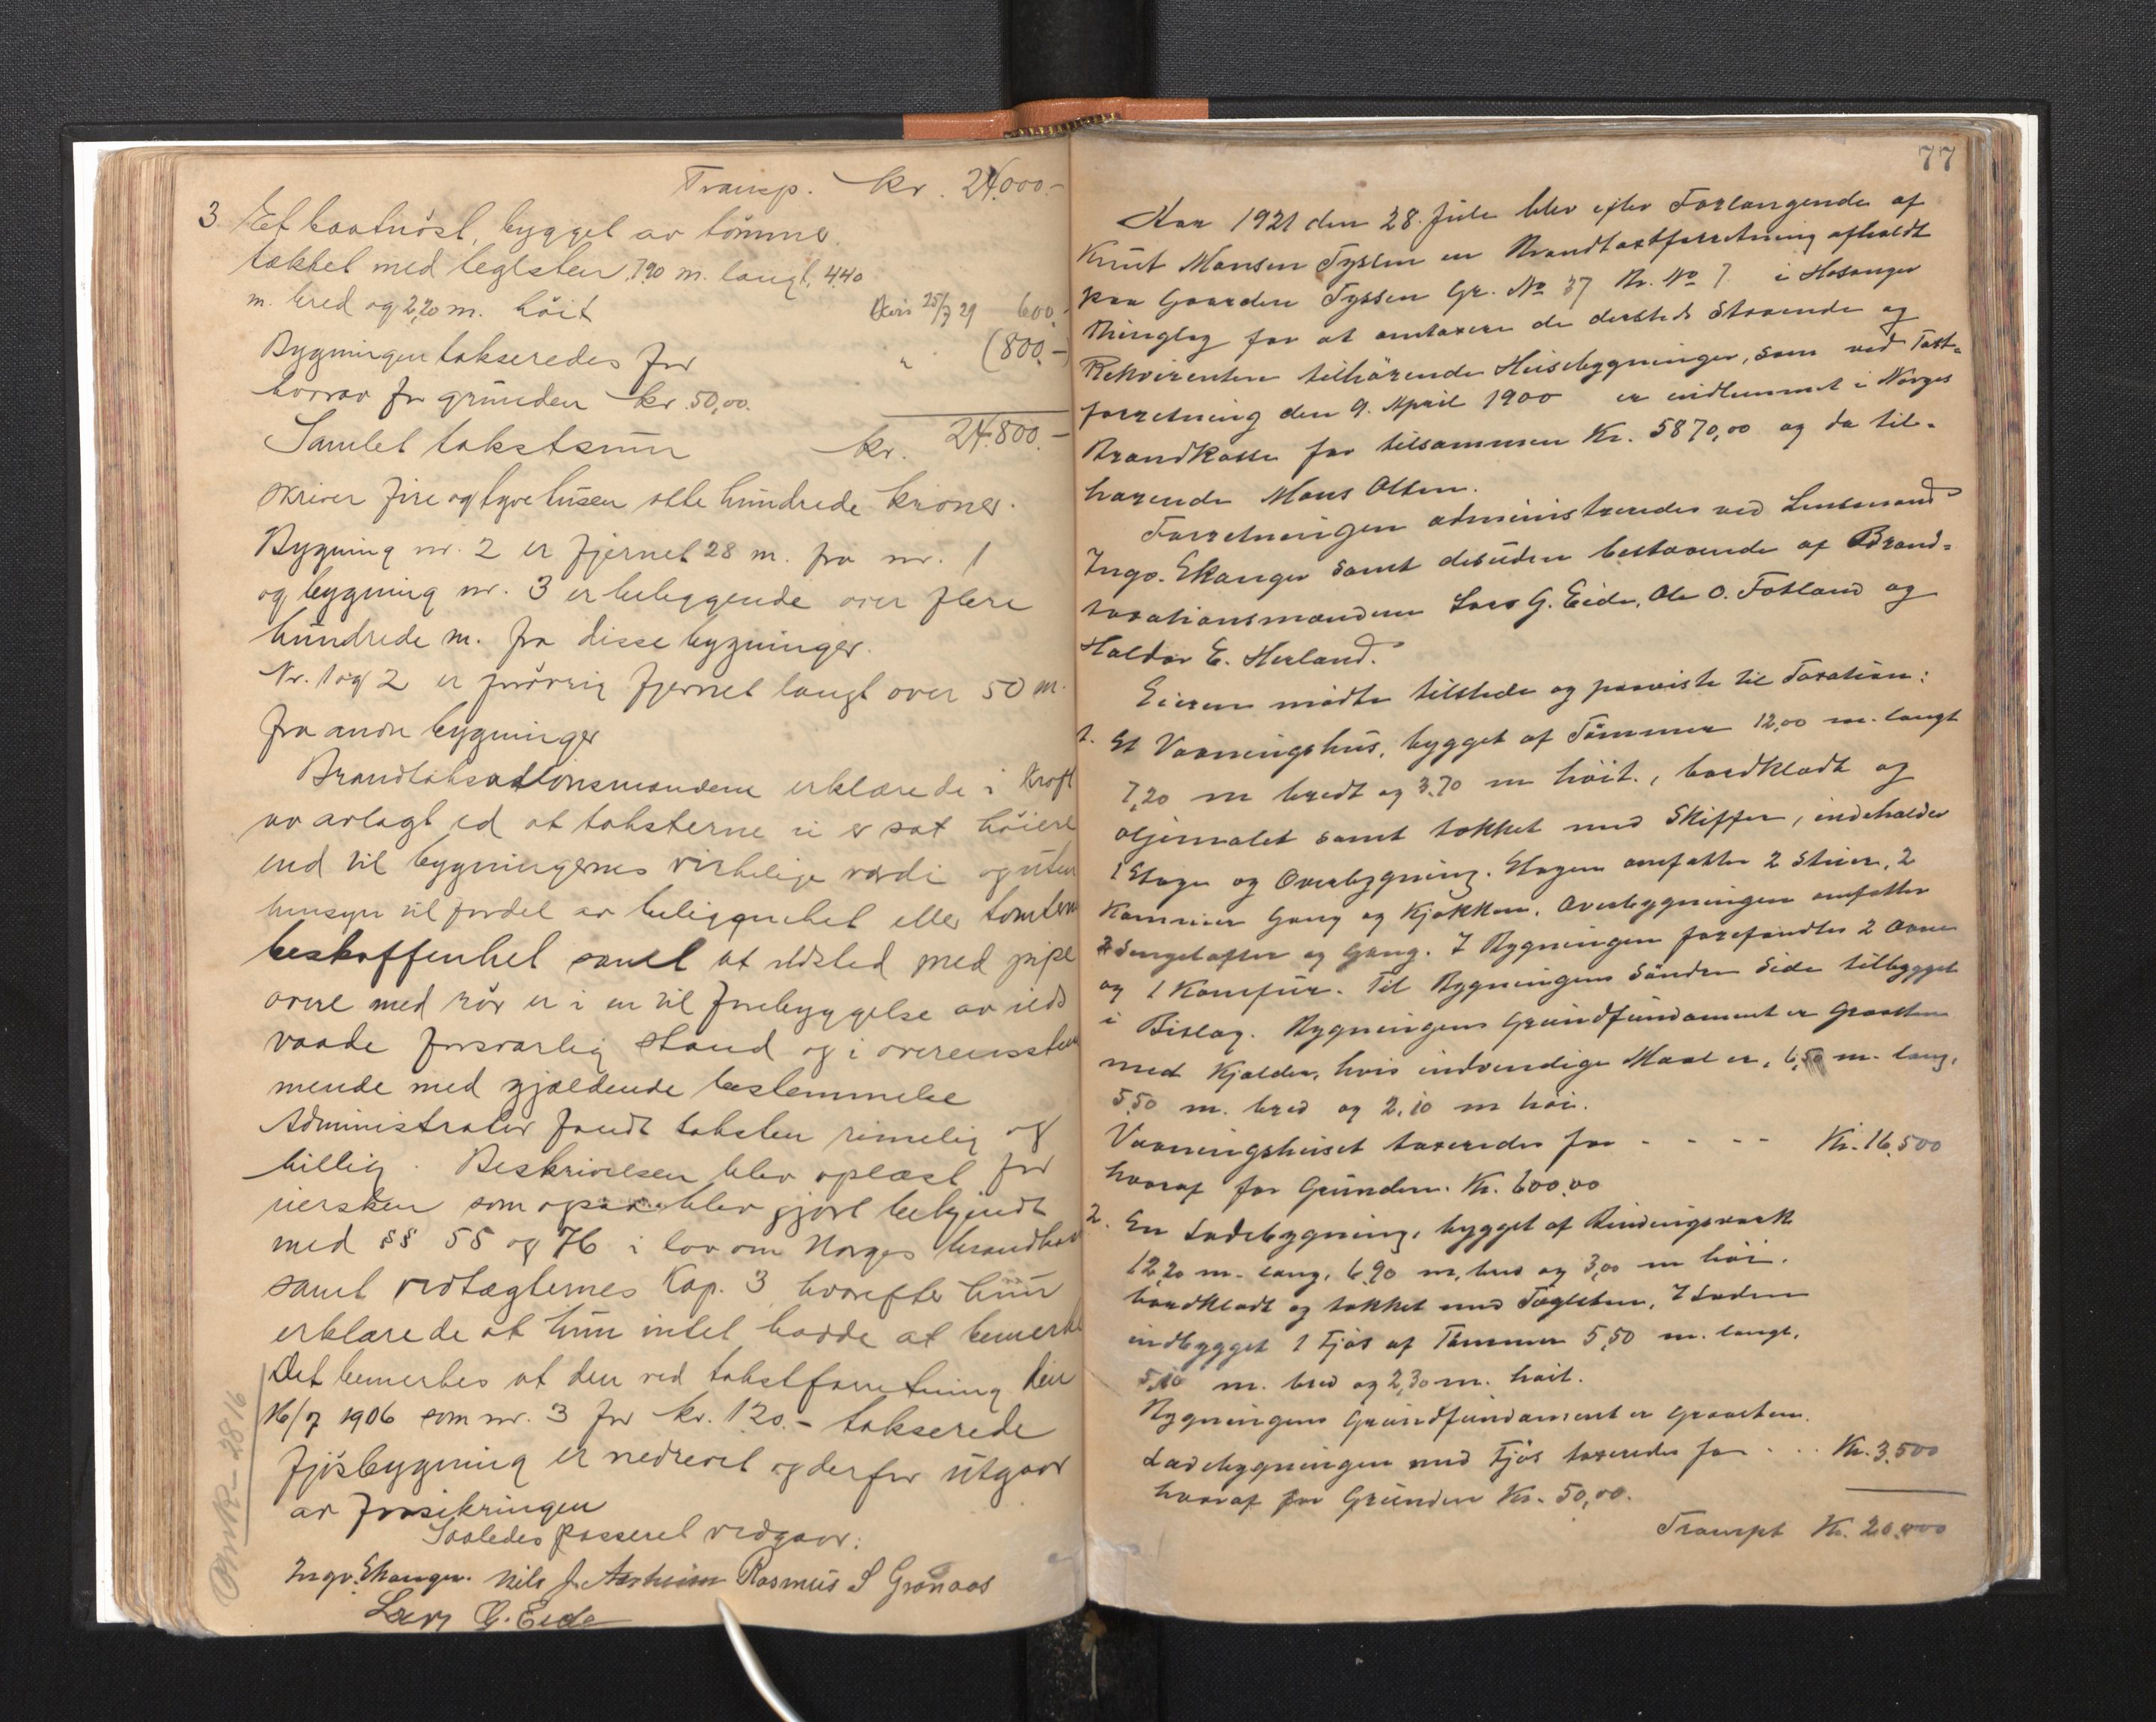 Transp. kr. 24.000.-
3. Et baatnöst, bygget av tömmer
tækket med teglsten 7.90 m. langt, 4.40
m. bred og 2,20 m. höit
25/7 29 600.-
Bygningen takseredes for " (800.-)
hvorav for grunden kr. 50,00.
Samlet takstsum kr. 24.800.-
skriver fire og tyve tusen otte hundrede kroner.
Bygning nr. 2 er fjernet 28 m. fra nr. 1
og bygning nr. 3 er beliggende over flere
hundrede m. fra disse bygninger.
Nr. 1 og 2 er forövrig fjernet langt over 50 m.
fra andre bygninger
Brandtaksationsmændene erklærede i kraft
av avlagt ed at taksterne ei er sat höiere
end til bygningernes virkelige værdi og uten
hensyn til fordel av beliggenhet eller tomtens
beskaffenhet samt at ildsted med pipe
ovne med rör er i en til forebyggelse av ilds
vaade forsvarlig stand og i overensstem
mende med gjældende bestemmelse
Administrator fandt taksten rimelig og
billig. Beskrivelsen blev oplæst for
eiersken som ogsaa blev gjort bekjendt
med §§ 55 og 76 i lov om Norges brandkas
samt vedtægternes Kap. 3 hvorefter hun
erklærede at hun intet hadde at bemerke
Det bemerkes at den ved takstforretning den
16/7 1906 som nr. 3 for kr. 120.- takserede
fjösbygning er nedrevet og derfor utgaar
av forsikringen
Saaledes passeret vedgaar:
Ingv. Ekanger. Nils J. Rasmus S Grönaas
Lars G. Eide
2816
77
Aar 1921 den 28. Juli blev efter Forlangende af
Knut Monsen Tyssen en Brandtaxtforretning afholdt
paa Gaarden Tyssen Gr. No 37 Br. No 7 i Hosanger
Thinglag for at omtaxere de dersteds staaende og
Rekvirenten tilhörende Husebygninger, som ved Taxt-
forretning den 9. April 1900 er indlemmet i Norges
Brandkasse for tilsammen Kr. 5870,00 og da til-
hørende Mons Olsen.
Forretningen administreredes ved Lensmand
Ingv. Ekanger samt desuden bestaaende af Brand-
taxationsmændene Lars G. Eide, Ole O. Fotland og
Haldor E. Herland.
Eieren mödte tilstede og paaviste til Taxation:
1. Et Vaaningshus, bygget af Tömmer 12,00 m. langt
7,20 m bredt og 3.70 m höit, bordklædt og
oljemalet samt tækket med Skiffer, indeholder
1 Etage og Overbygning. Etagen omfatter 2 Stuer, 2
Kammer Gang og Kjökken. Overbygningen omfatter
2 Sengelofter og Gang. I Bygningen forefandtes 2 Ovne
og 1 Komfür. Til Bygningens Söndre Side tilbygget
i Bislag. Bygningens Grundfundament er Graasten
med Kjælder, hvis indvendige Maal er, 6,50 m. lang,
5,50 m. bred og 2,10 m höi.
Vaaningshuset taxeredes for - - - - Kr. 16,500
hvoraf for Grunden. Kr. 600,00
2. En Ladebygning, bygget af Bindingsværk
12,20 m. lang, 6,90 m. bred og 3,00 m höi.
bordklædt og tækket med Taglsten, I Laden
indbygget 1 Fjös af Tömmer 5,50 m. langt,
m. bred og 2,30 m. höit.
Bygningens Grundfundament er Graasten.
Ladebygningen med Fjös taxeredes for . . . Kr. 3,500
hvoraf for Grunden Kr. 50,00.
Transpt Kr. 20,000